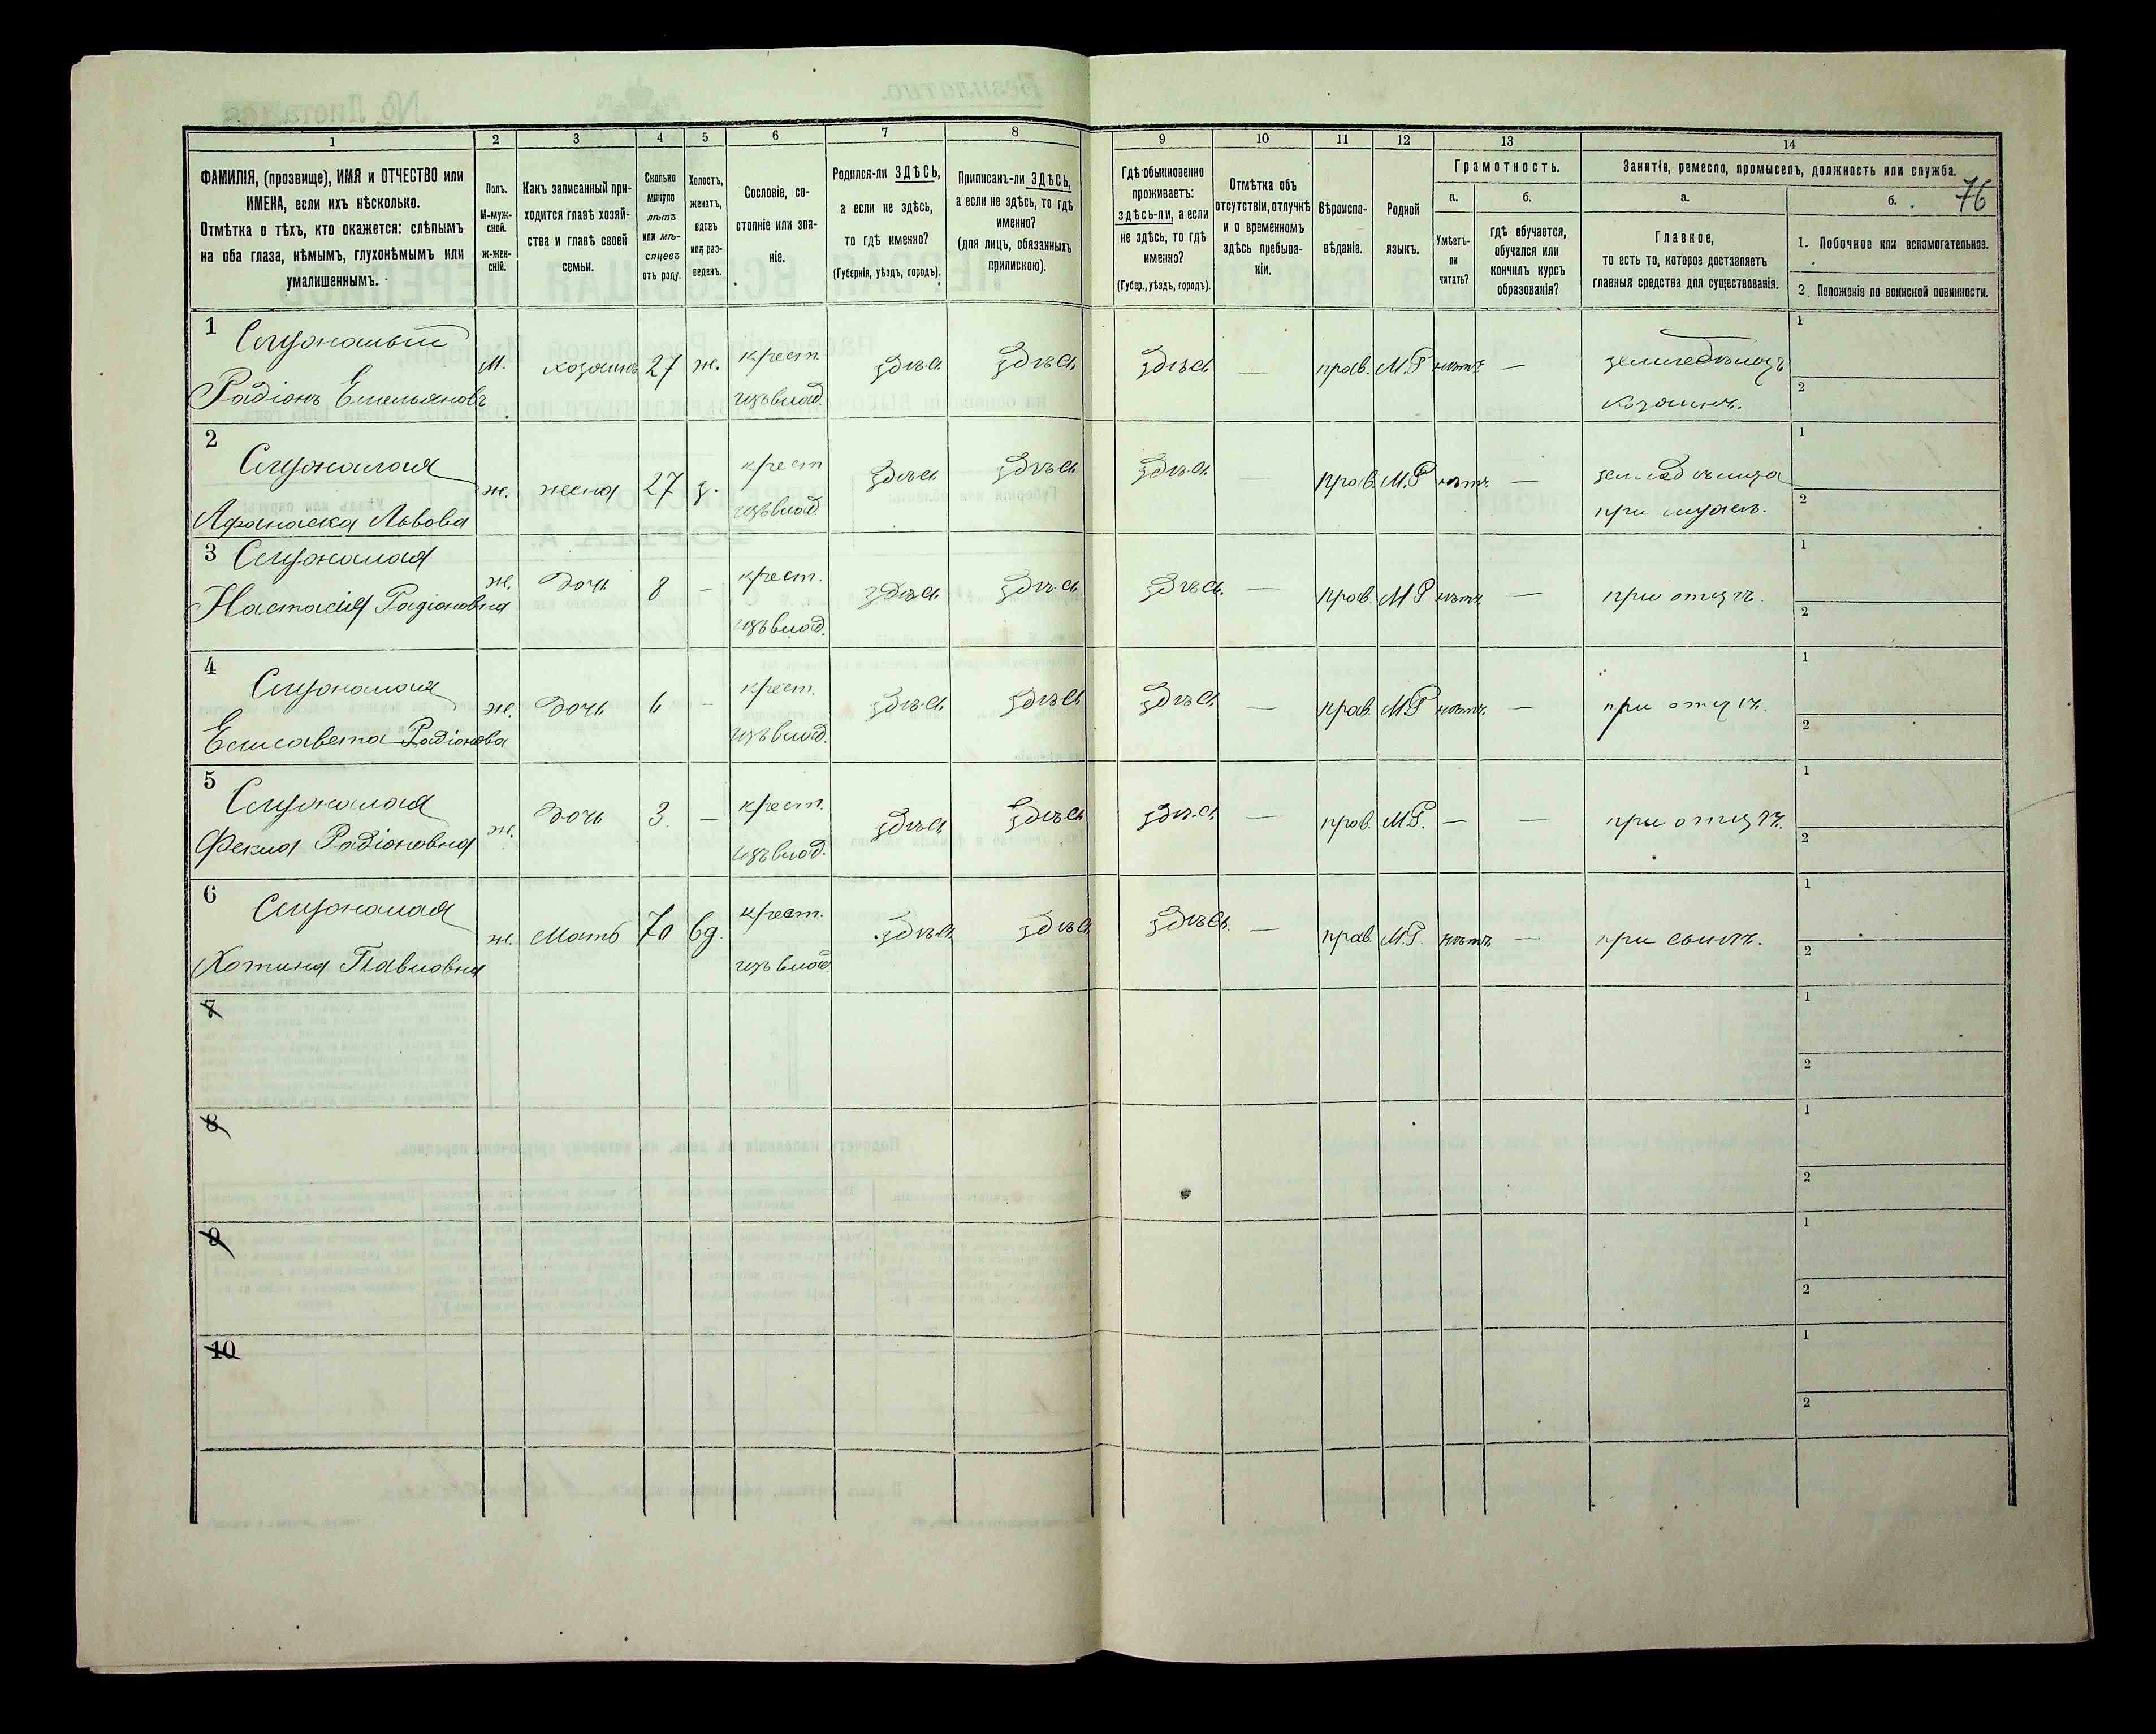 1 2 3 4 5 6 7 8 9 10 11 12 13 14
ФАМИЛІЯ, (прозвище), ИМЯ и ОТЧЕСТВО или
ИМЕНА, если ихъ нѣсколько.
Отмѣтка о тѣхъ, кто окажется: слѣпымъ
на оба глаза, нѣмымъ, глухонѣмымъ или
умалишеннымъ.
Полъ.
М-муж-
ской.
ж-жен-
скій.
Какъ записанный при-
ходится главѣ хозяй-
ства и главѣ своей
семьи.
Сколько
минуло
лѣтъ
или мѣ-
сяцевъ
отъ роду.
Холостъ,
женатъ,
вдовъ
или раз-
веденъ.
Сословіе, со-
стояніе или зва-
ніе.
Родился-ли ЗДѢСЬ,
а если не здѣсь,
то гдѣ именно?
(Губернія, уѣздъ, городъ).
Приписанъ-ли ЗДѢСЬ,
а если не здѣсь, то гдѣ
именно?
(для лицъ, обязанныхъ
припискою).
Гдѣ обыкновенно
проживаетъ:
здѣсь-ли, а если
не здѣсь, то гдѣ
именно?
(Губер., уѣздъ, городъ).
Отмѣтка объ
отсутствіи, отлучкѣ
и о временномъ
здѣсь пребыва-
ніи.
Вѣроиспо-
вѣданіе.
Родной
языкъ.
Грамотность.
а.
Умѣетъ-
ли
читать?
б.
гдѣ обучается,
обучался или
кончилъ курсъ
образованія?
Занятія, ремесло, промыселъ, должность или служба.
а.
Главное,
то есть то, которое доставляетъ
главныя средства для существованія.
б.
76
1. Побочное или вспомогательное.
2. Положеніе по воинской повинности.
1
Радіонъ Емельяновъ
М. хозяинъ 27 ж. крест. изъ влад. здѣсь здѣсь здѣсь — прав. М.Р. нѣтъ — земледѣлецъ
хозяинъ.
1
2
2
Афанаска Львова
ж. жена 27 з. крест. изъ влад. здѣсь здѣсь здѣсь — прав. М.Р. нѣтъ —
при мужѣ.
1
2
3
Настасія Радіоновна
ж. дочь 8 — крест. изъ влад. здѣсь здѣсь здѣсь. — прав. М.Р. нѣтъ — при отцѣ.
1
2
4
Елисавета Радіонова
ж. дочь 6 — крест. изъ влад. здѣсь здѣсь здѣсь — прав. М.Р. нѣтъ — при отцѣ.
1
2
5
Фекла Радіоновна
ж. дочь 3. — крест. изъ влад. здѣсь здѣсь здѣсь — прав. М.Р. — — при отцѣ.
1
2
6
Павловна
ж. мать 70 вд. крест. изъ влад. здѣсь здѣсь здѣсь. — прав. М.Р. нѣтъ — при сынѣ.
1
2
7
1
2
8
1
2
9
1
2
10
1
2